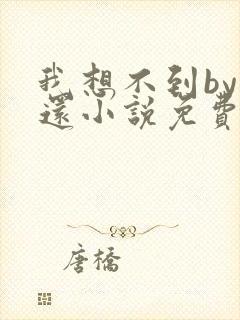 我想不到by
还小說免費
唐橋